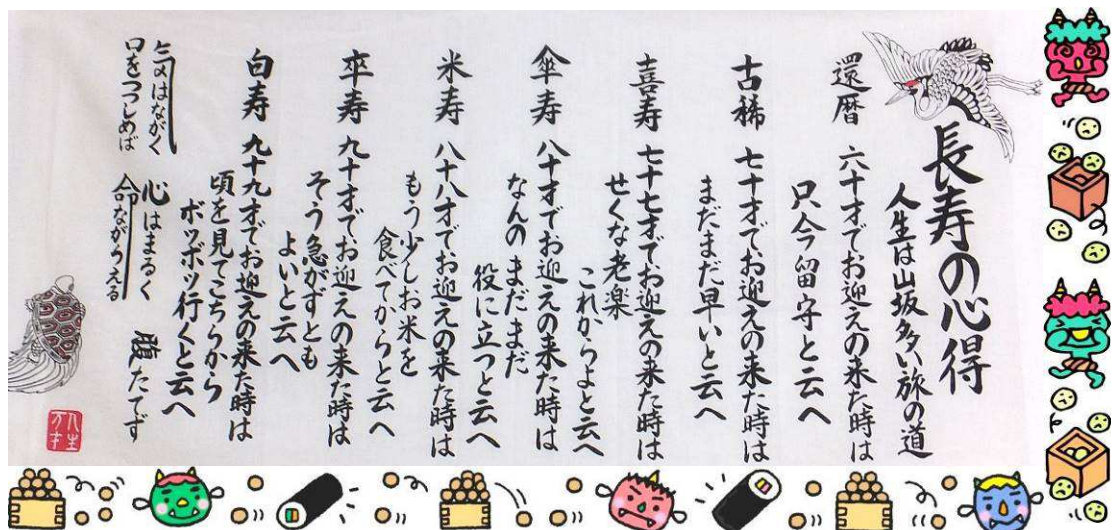 長寿の心得
人生は山坂多い旅の道
還暦 六十才でお迎えの来た時は
只今留守と云へ
古稀 七十才でお迎えの来た時は
まだまだ早いと云へ
喜寿 七十七才でお迎えの来た時は
せくな老楽
これからよと云へ
傘寿 八十才でお迎えの来た時は
なんのまだまだ
役に立つと云へ
米寿 八十八才でお迎えの来た時は
もう少しお米を
食べてからと云へ
卒寿 九十才でお迎えの来た時は
そう急がずとも
よいと云へ
白寿 九十九才でお迎えの来た時は
頃を見てこちらから
ボツボツ行くと云へ
気はながく 心はまるく 腹たてず
口をつつしめば 命ながらえる
人生万才